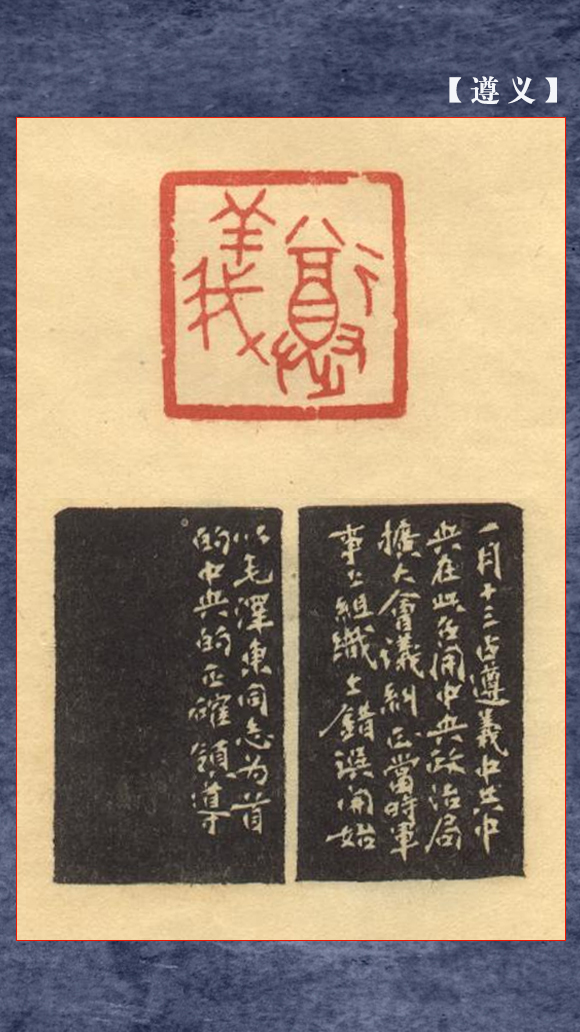 【遵义】
遵義
一月十三占遵義中共中
央在此召開中央政治局
擴大會議糾正當時軍
事上組織上錯誤開始
以毛澤東同志为首
的中央的正確領導